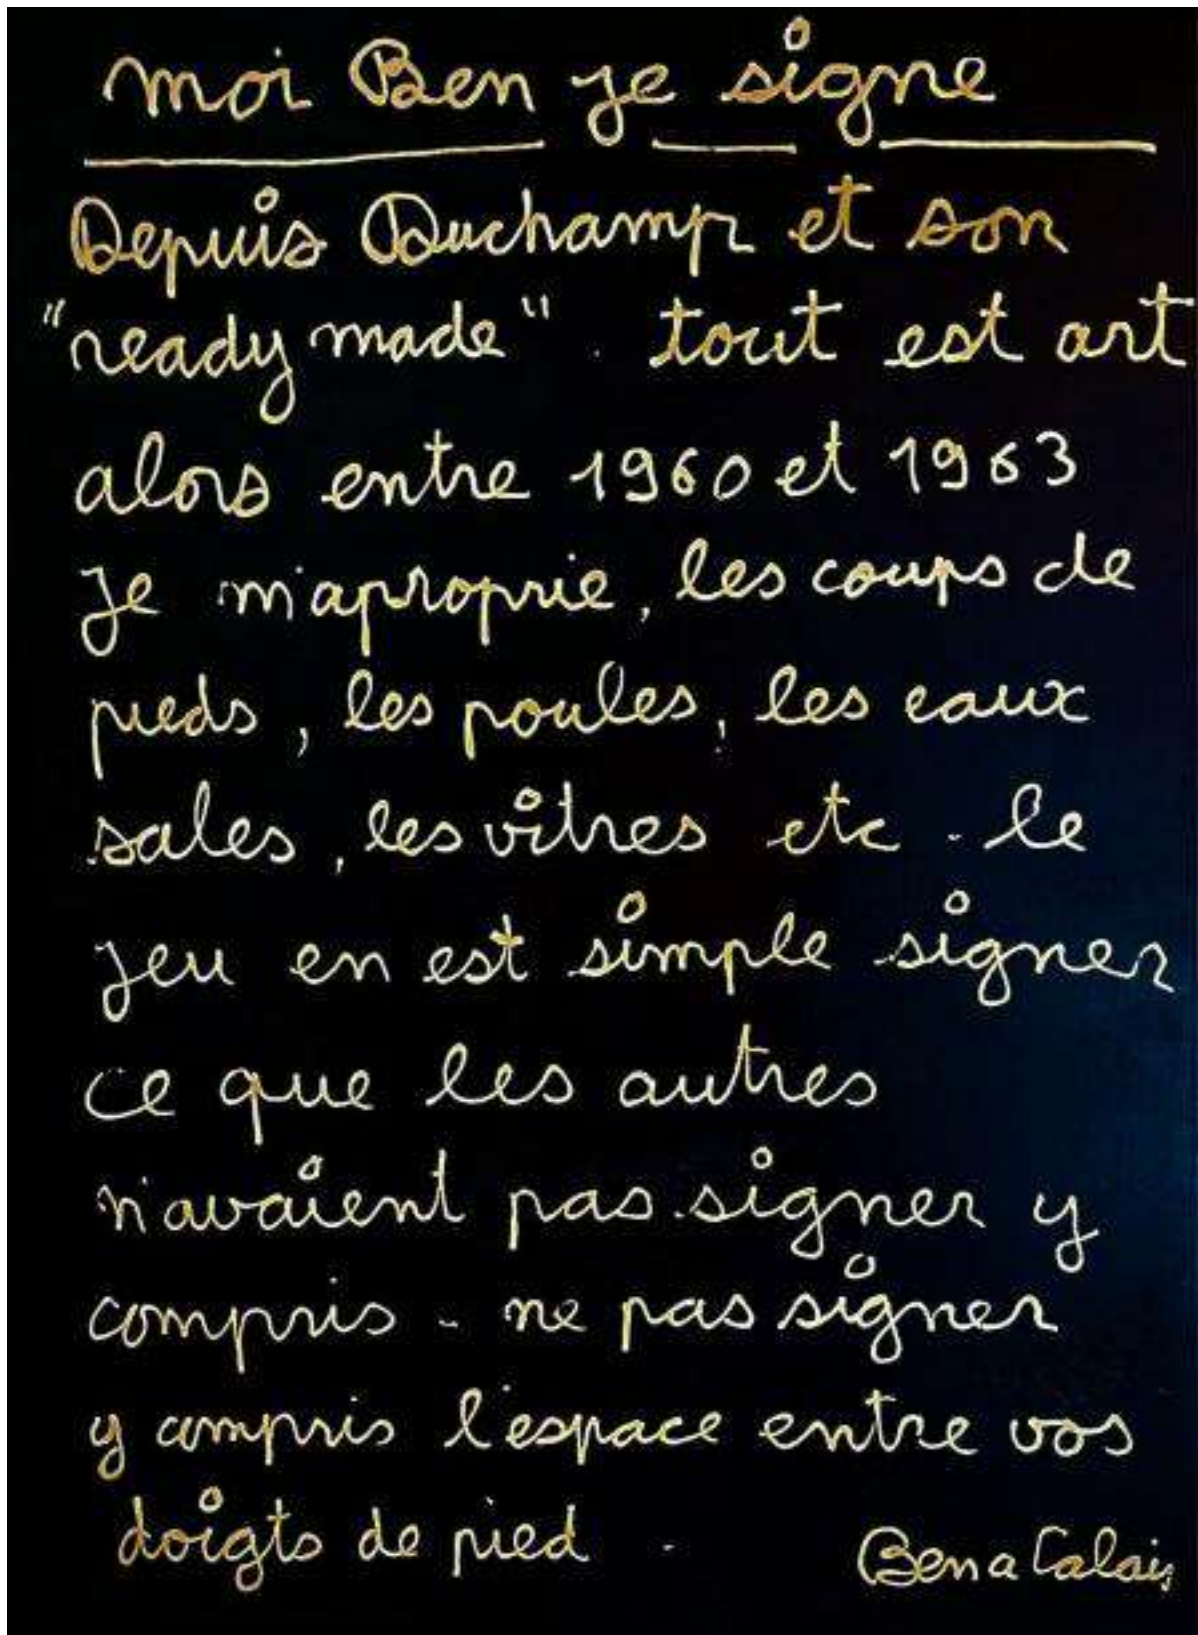 moi Ben je signe
Depuis Duchamp et son
"ready made". tout est art
alors entre 1960 et 1963
Je m'aproprie, les coups de
pieds, les poules, les eaux
sales, les vitres etc. le
jeu en est simple signer
ce que les autres
n'avaient pas signer y
compris - ne pas signer
y compris l'espace entre vos
doigts de pied.
Ben a Calais